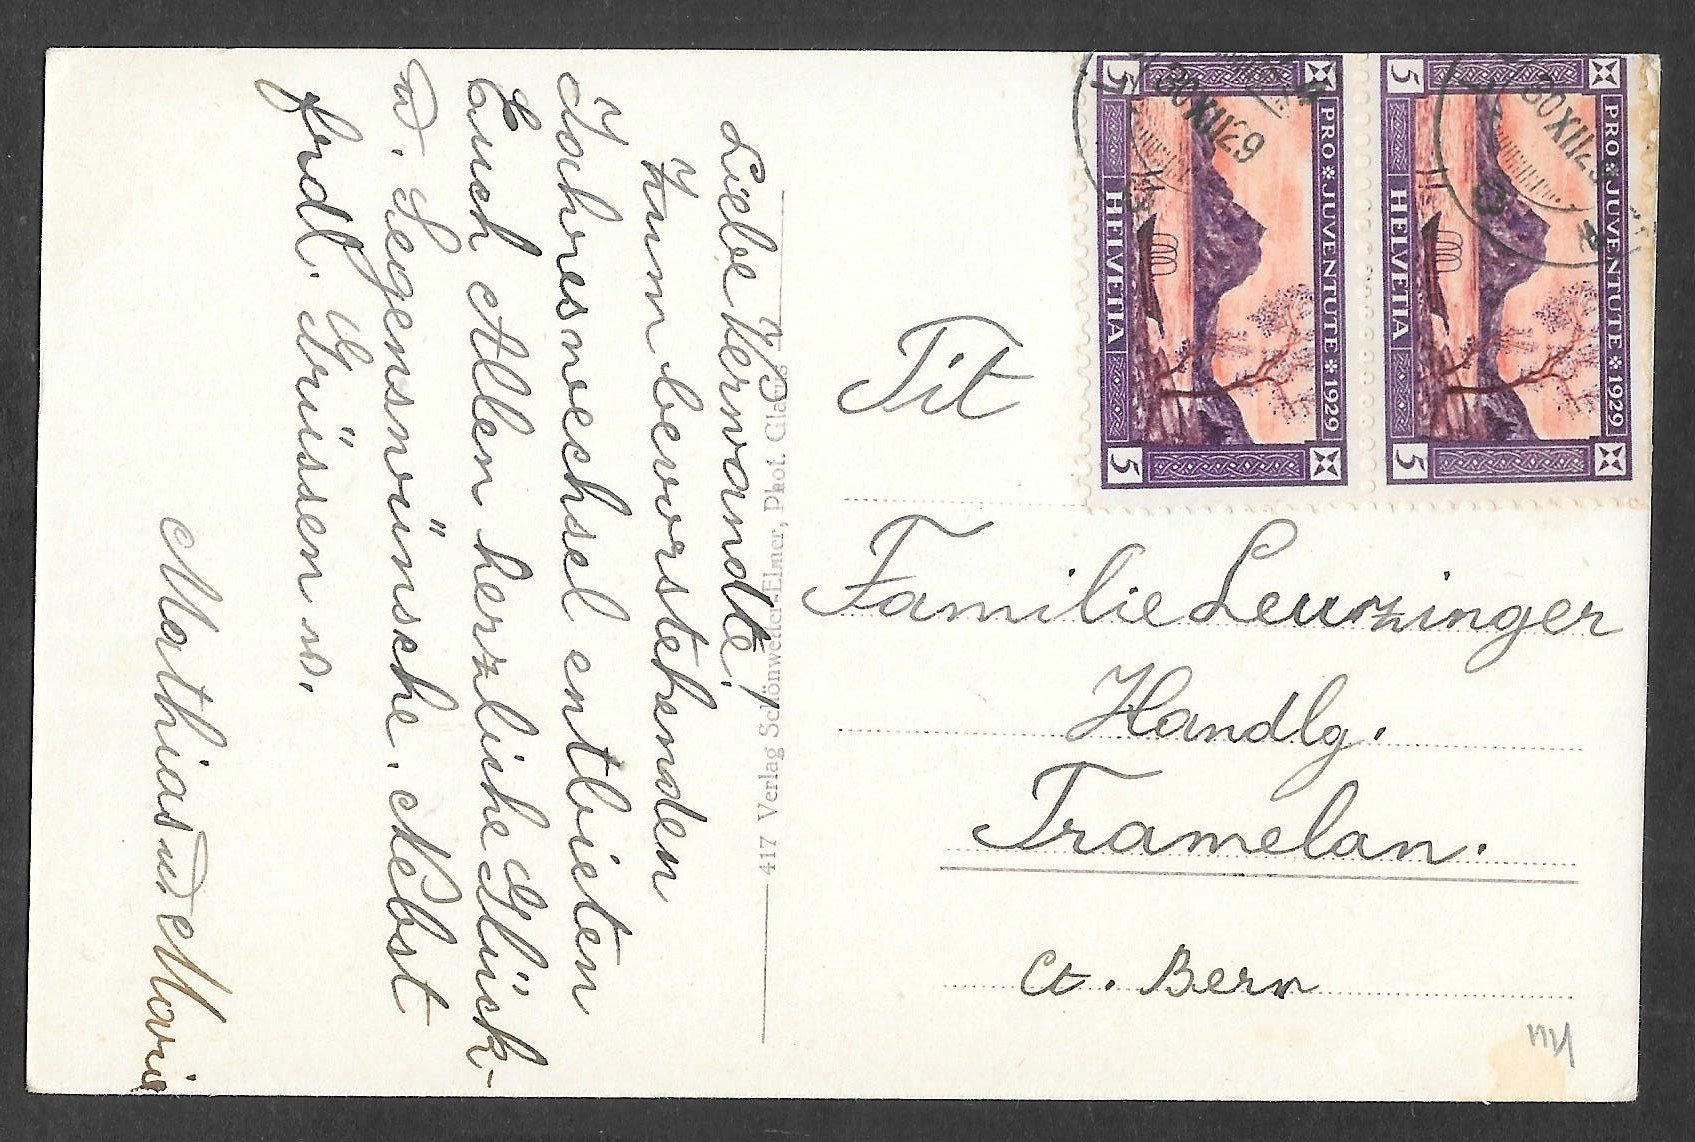 Liebe Verwandte!
Zum bevorstehenden
Jahreswechsel entbieten
Euch Allen herzliche Glück-
u. Segenswünsche. Nebst
frdl. Grüssen v.
Mathias u Marie
417 Verlag Schönwetter-Elmer, Phot. Glarus
PRO JUVENTUTE 1929
HELVETIA
5
5
30 XII 29
PRO JUVENTUTE 1929
HELVETIA
5
5
30 XII 29
Tit
Familie Leuzinger
Handlg.
Tramelan.
Ct. Bern